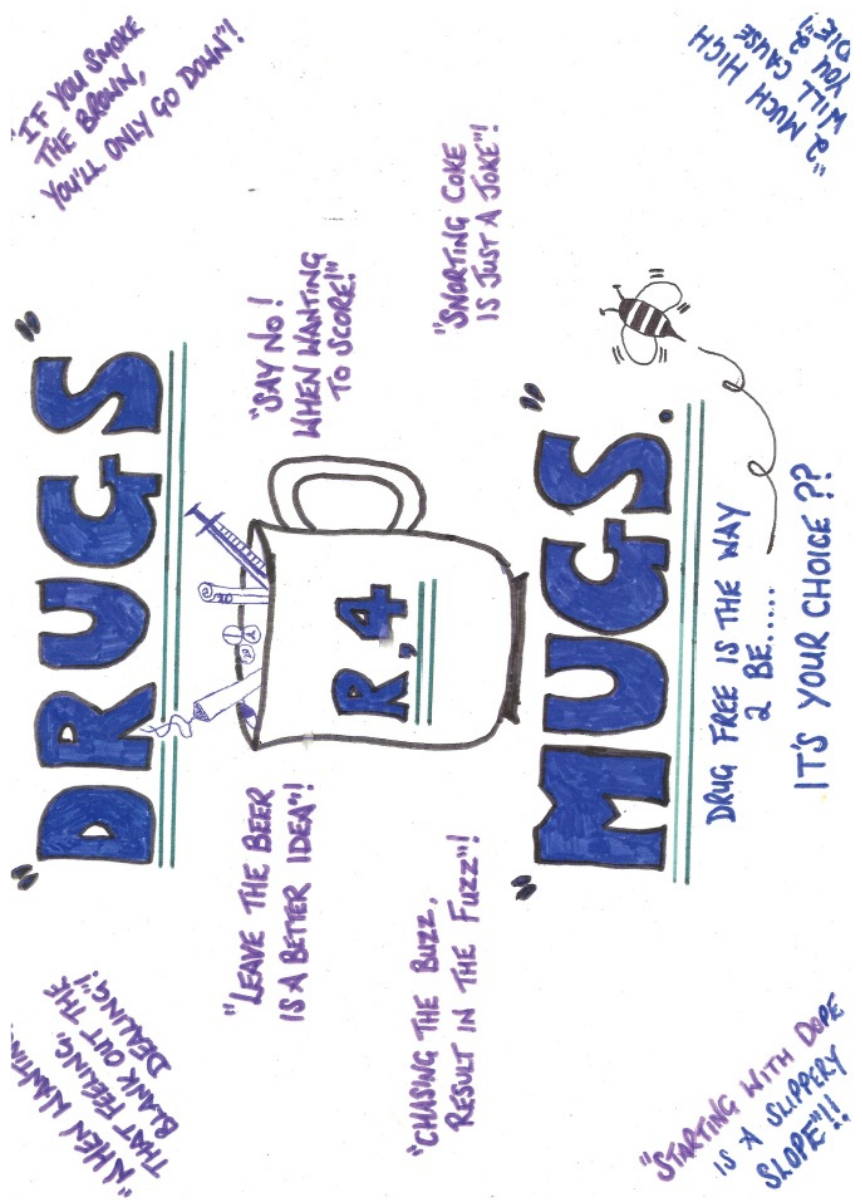 "WHEN WANTIN
THAT FEELING,
BLANK OUT THE
DEALING"!
"DRUGS"
"IF YOU SMOKE
THE BROWN,
YOU'LL ONLY GO DOWN"!
"LEAVE THE BEER
IS A BETTER IDEA"!
"SAY NO!
WHEN WANTING
TO SCORE!"
R,4
"CHASING THE BUZZ,
RESULT IN THE FUZZ"!
"SNORTING COKE
IS JUST A JOKE"!
"MUGS".
DRUG FREE IS THE WAY
2 BE......
IT'S YOUR CHOICE??
"STARTING WITH DOPE
IS A SLIPPERY
SLOPE"!!
"2 MUCH HIGH
WILL CAUSE
YOU 2
DIE"!